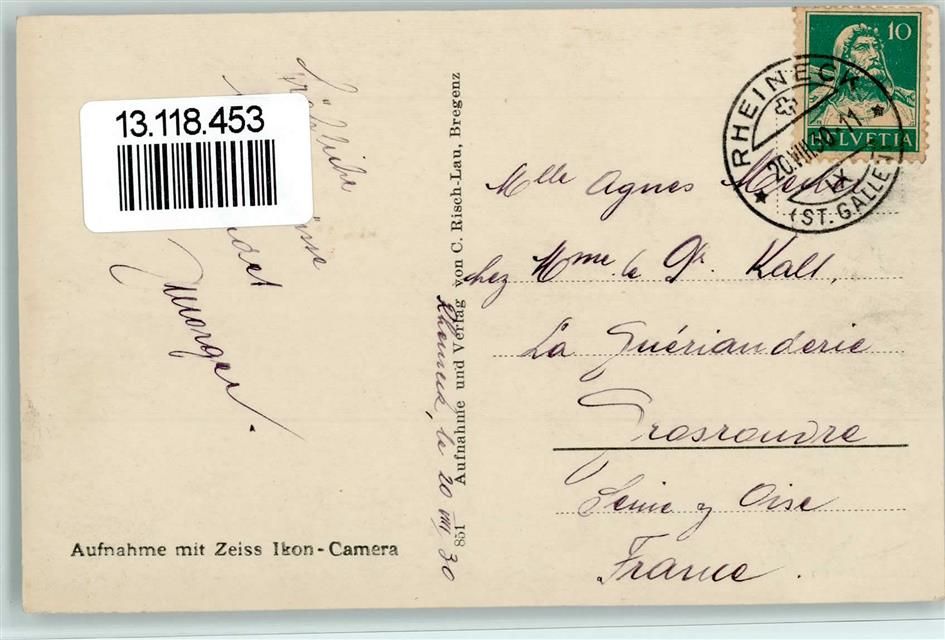 13.118.453
Fröhliche
Morger
Aufnahme mit Zeiss Ikon-Camera
851 Aufnahme und Verlag von C. Risch-Lau, Bregenz
Rheineck, le 20 VIII 30
10
HELVETIA
RHEINECK
20.VIII.30-11
IX
(ST. GALLEN)
Mlle Agnes
chez Mme le Dr. Kall,
La Guérianderie
Grosroudre
Seine y Oise
France.